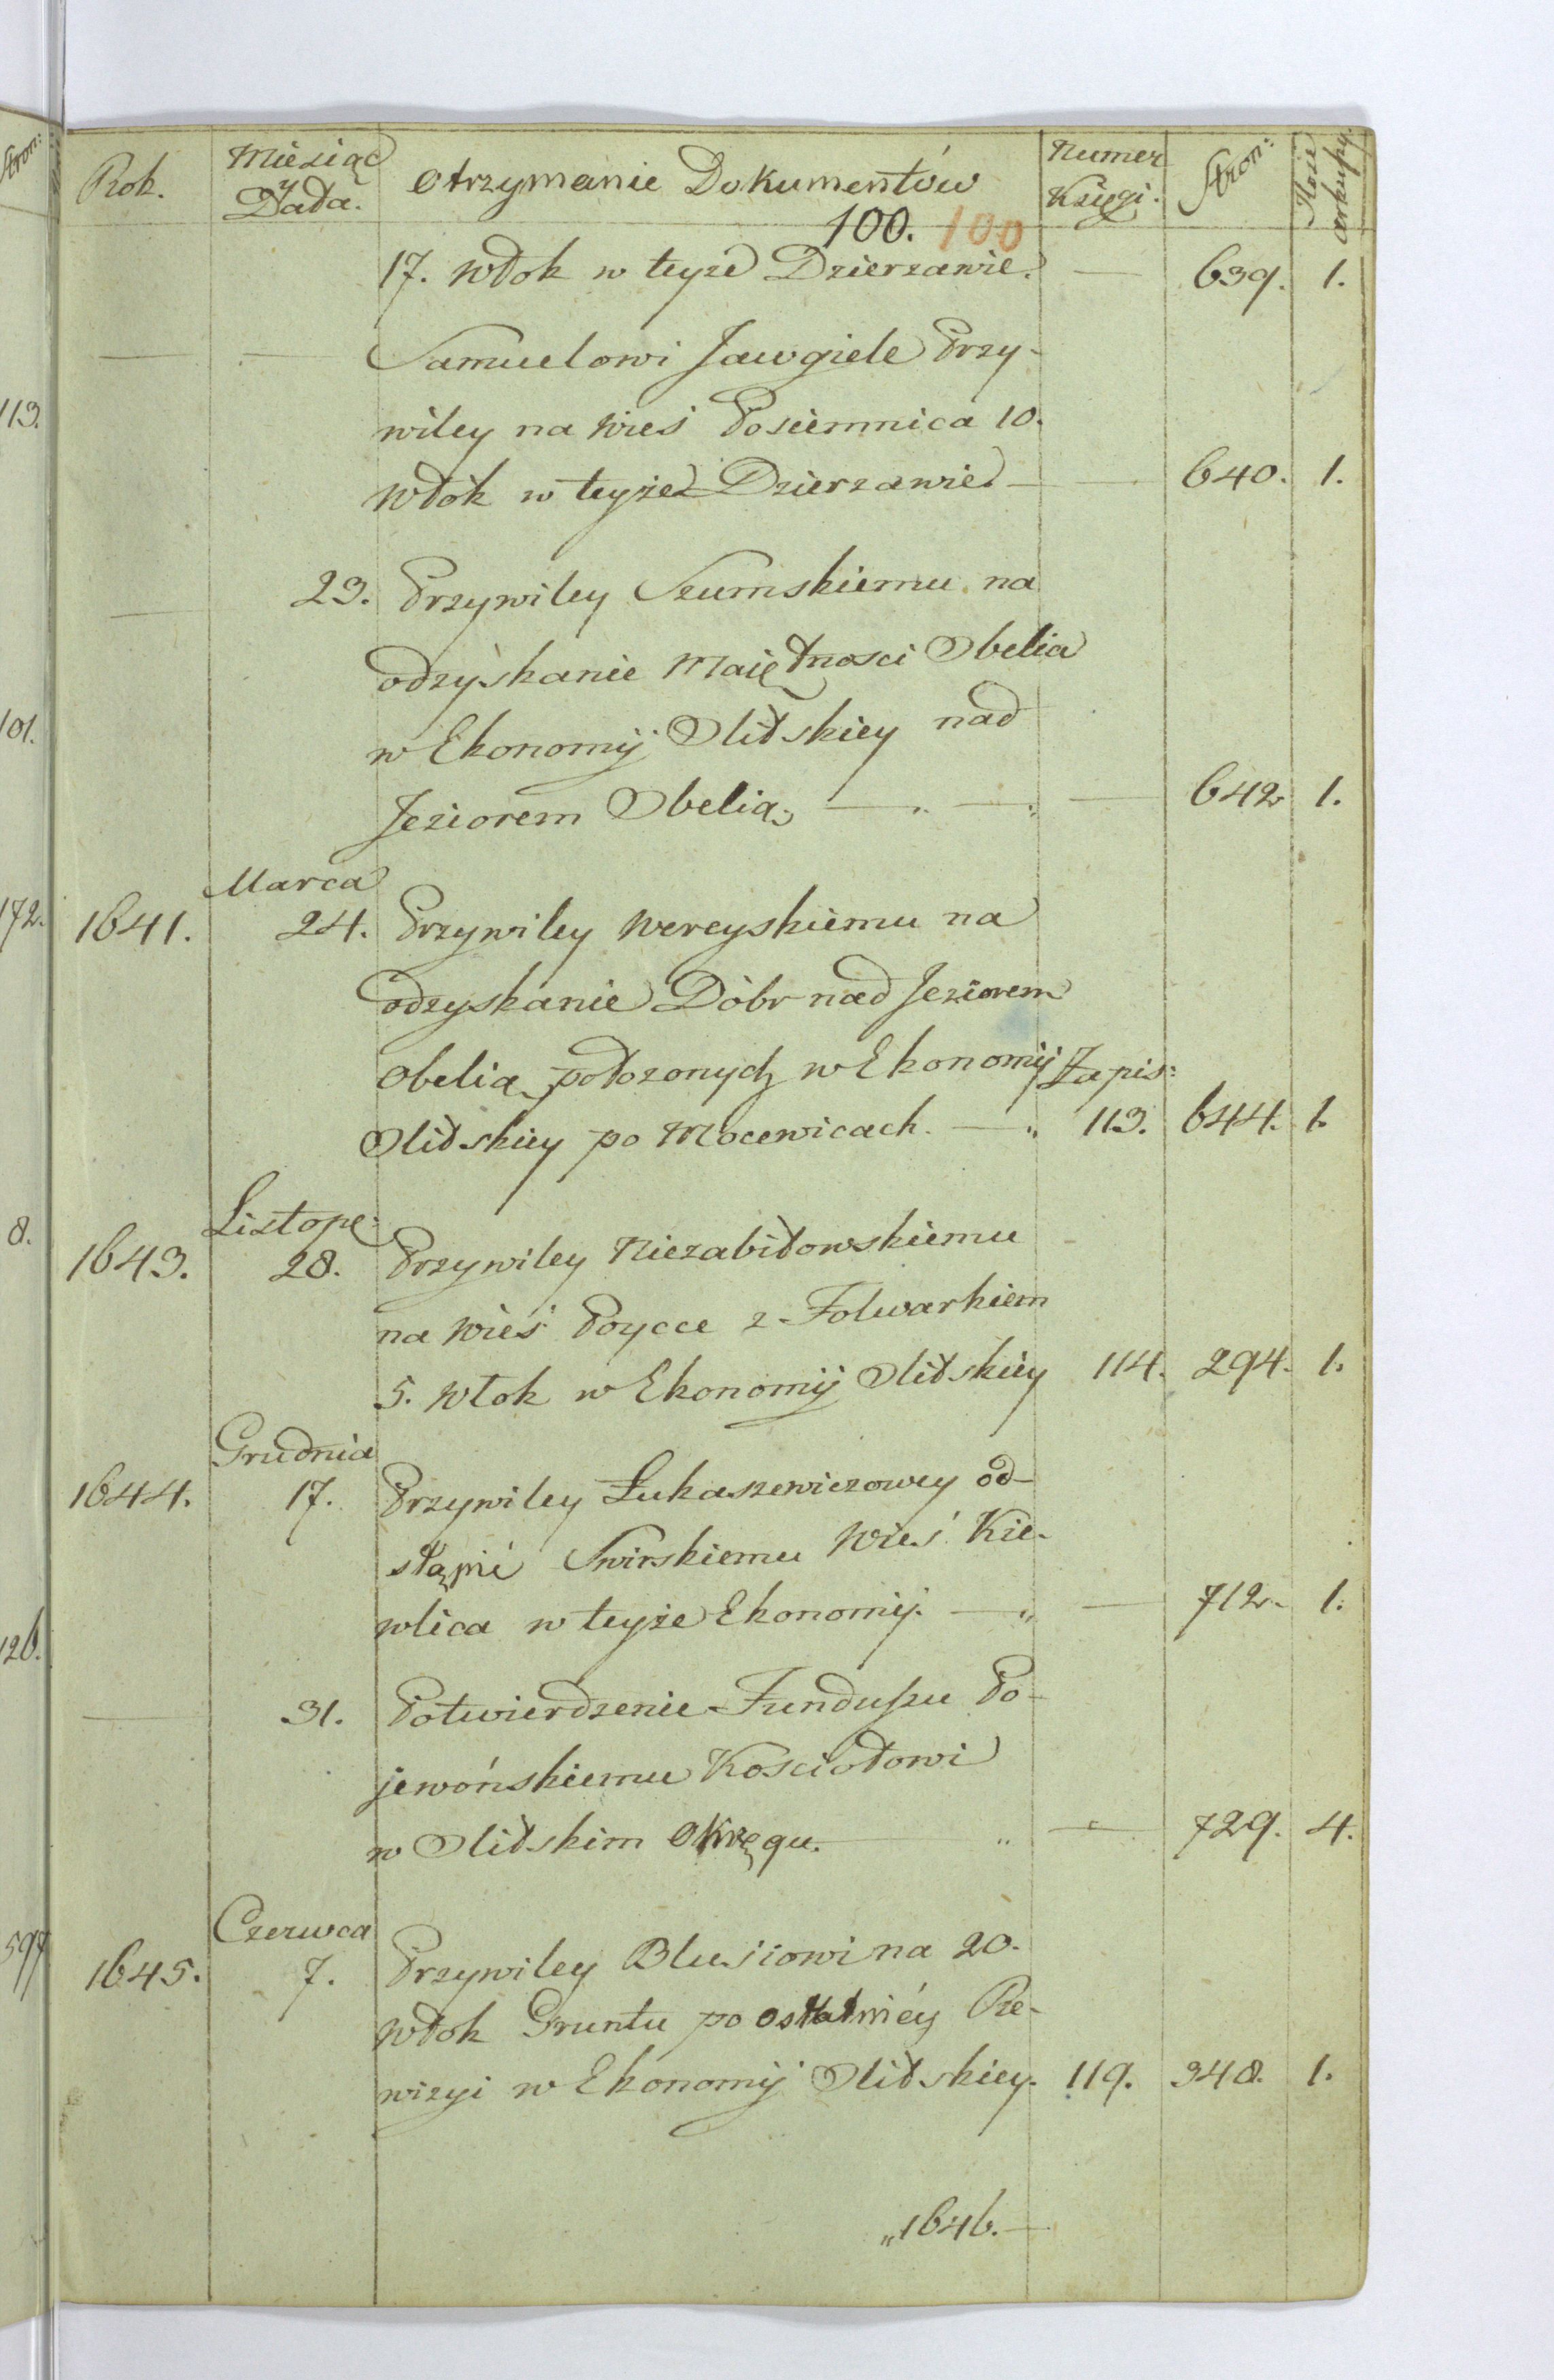 Rok. Miesiąc y Data. Otrzymanie Dokumentów Numer Księgi. Stron: arkuszy.
100. 100
17. Włok w teyże Dzierżawie. — 639. 1.
— — Samuelowi Jawgiele Przy-
wiley na Wieś Posiemnica 10.
Włók w teyże Dzierzawie — 640. 1.
— 23. Przywiley Szumskiemu na
odzyskanie Maiętnosci Obelia
w Ekonomij Olitskiey nad
Jeziorem Obelią — — — 642 1.
Marca
1641. 24. Przywiley Wereyskiemu na
odzyskanie Dóbr nad Jeziorem
Obelią położonych w Ekonomij Zapis:
Olitskiey po Mocewicach. — 113. 644. 1.
Listopa:
1643. 28. Przywiley Niezabitowskiemu
na Wieś Poycce z Folwarkiem
5. Włok w Ekonomij Olitskiey 114. 294. 1.
Grudnia
1644. 17. Przywiley Łukaszewiczowey od-
stąpić Swirskiemu Wieś Kie-
wlica w teyże Ekonomij. — — 712. 1.
— 31. Potwierdzenie Funduszu Po-
jewońskiemu Kosciołowi
w Olitskim Okręgu. — 729. 4.
Czerwca
1645. 7. Przywiley Blusiowi na 20.
Włok Gruntu po ostatniéy Re-
wizyi w Ekonomij Olitskiey. 119. 348. 1.
„1646. —
Stron:
113.
101.
172.
8.
126.
597